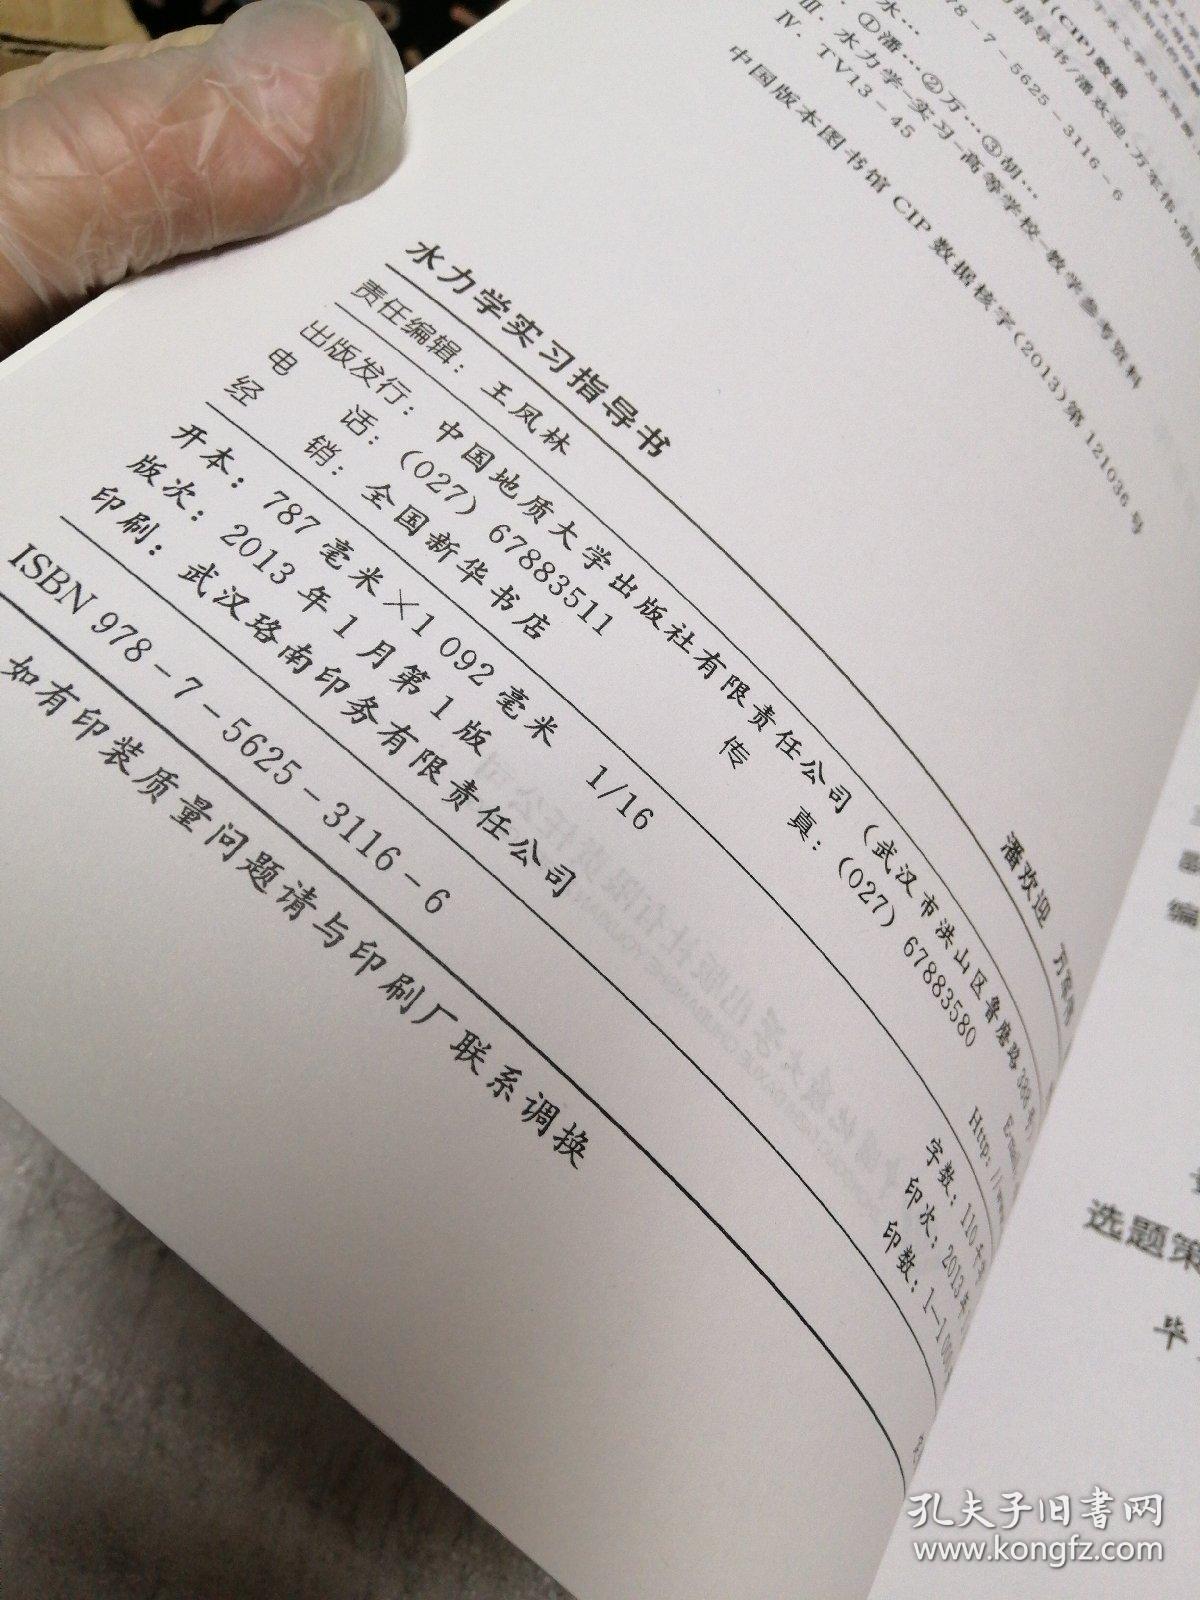 (CIP)数据
指导书/潘欢迎,万军伟,胡
78-7-5625-3116-6
水…
①潘…②万…③胡…
Ⅲ.水力学-实习-高等学校-教学参考资料
Ⅳ.TV13-45
中国版本图书馆 CIP 数据核字(2013)第 121036 号
水力学实习指导书
潘欢迎 万军伟
责任编辑：王凤林
出版发行：中国地质大学出版社有限责任公司（武汉市洪山区鲁磨路 388 号）
电 话：(027) 67883511 传 真：(027) 67883580
经 销：全国新华书店 Http://www
开本：787 毫米×1 092 毫米 1/16 字数：110千字
版次：2013 年 1 月第 1 版 印次：2013年
印刷：武汉珞南印务有限责任公司 印数：1—1 000
ISBN 978-7-5625-3116-6
如有印装质量问题请与印刷厂联系调换
编
选题策
毕
孔夫子旧书网
www.kongfz.com